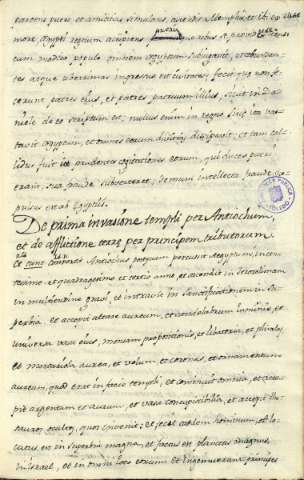 parcens pueri et amicitias simulans, ascendit Memphim, et ibi ex
more Aegypti regnum accipiens, puerique
modico populo omnem Aegyptum subiugavit, et abundan-
tes atque uberrimas ingressus est civitates, fecit quae non fe-
cerunt patres eius, et patres patrum illius, sicut in Da-
niele
scriptum est, nullus enim in regno Syriae ita vas-
tavit Aegyptum, et omnes eorum divitias dissipavit, et tam cal-
lidus fuit ut prudentes cogitationes eorum, qui duces pueri
erant, sua fraude subverteret, demum intellecta fraude
pulsus est ab Egyptiis.
De prima invasione templi per Antiochum,
et de afflictione per principem tributorum.
Antiochus postquam percussit Aegyptum, in cen-
tesimo et quadragesimo et tertio anno et ascendit in Ierusalimam
in multitudine gravi, et intravit in sanctificationem in su-
perbia et accepit altare aureum, et candelabrum luminis, et
universa vasa eius, mensam propositionis, et libatoria, et phialas,
et mortariola aurea, et velum, et coronas, et ornamentum
aureum, quod erat in facie templi, et comminuit omnia, et acce-
pit argentum et aurum, et vasa concupiscibilia, et accepit the-
sauros occultos, quos invenit, et fecit caedem hominum, et lo-
cutus est in superbia magna, et factus est planctus magnus
in Israel, et in omni loco eorum et ingemuerunt principes